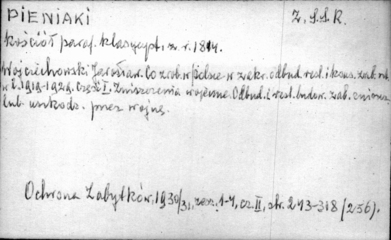 PIENIAKI Z.S.S.R.
kościół paraf. klasycyst., z r. 1814.
Wojciechowski Jarosław. Co zrob. w Polsce w zakr. odbud. rest. i kons. zab.
w l. 1919-1929. Część I. Zniszczenia wojenne. Odbud. i rest. budow. zab. zniszcz.
lub uszkodz. przez wojnę.
Ochrona Zabytków, 1930/31, zesz. 1-4, cz. II, str. 243-318 (256).